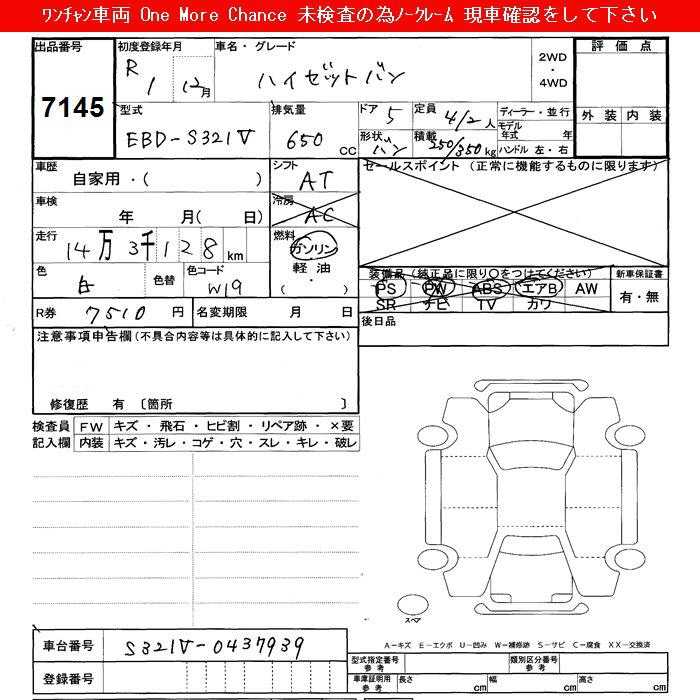 ﾜﾝﾁｬﾝ車両 One More Chance 未検査の為ﾉｰｸﾚｰﾑ 現車確認をして下さい
出品番号 初度登録年月 車名・グレード 評価点
7145 R 1 12月 ハイゼットバン 2WD・4WD
型式 排気量 ドア 5 定員 4/2人 ディーラー・並行 外装 内装
EBD-S321V 650 CC 形状 バン 積載 250/350 kg モデル年式 年 ハンドル 左・右
車歴 自家用・( ) シフト AT セールスポイント (正常に機能するものに限ります)
車検 年 月( 日) 冷房 AC
走行 14万3千128km 燃料 ガソリン 軽油 ・( )
色 白 色替 色コード W19 装備品(純正品に限り○をつけてください) 新車保証書
PS PW ABS エアB AW 有・無
SR ナビ TV カワ
R券 7510 円 名変期限 月 日 後日品
注意事項申告欄(不具合内容等は具体的に記入して下さい)
修復歴 有 〔箇所 〕
検査員 FW キズ・飛石・ヒビ割・リペア跡・×要
記入欄 内装 キズ・汚レ・コゲ・穴・スレ・キレ・破レ
スペア
A-キズ E-エクボ U-凹み W-補修跡 S-サビ C-腐食 XX-交換済
車台番号 S321V-0437939 型式指定番号 参考 類別区分番号 参考
登録番号 車庫証明用 参考 長さ cm 幅 cm 高さ cm